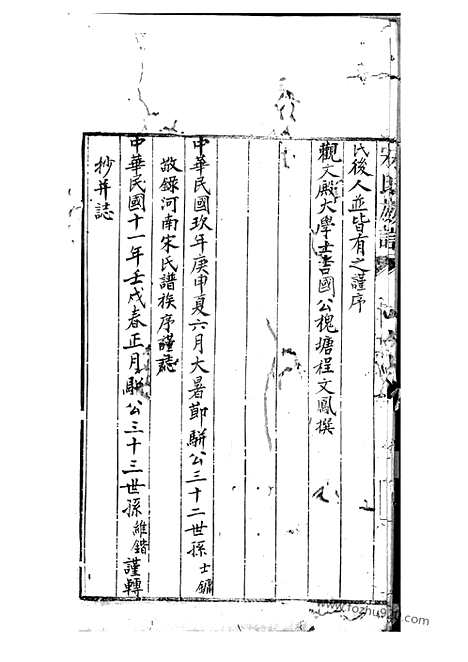 宋氏族譜
氏後人並皆有之謹序
觀文殿大學士吉國公槐塘程文鳳撰
中華民國玖年庚申夏六月大暑節駢公三十二世孫士鏞
敬錄河南宋氏譜族序謹誌
中華民國十一年壬戌春正月駢公三十三世孫維鍇謹轉
抄并誌